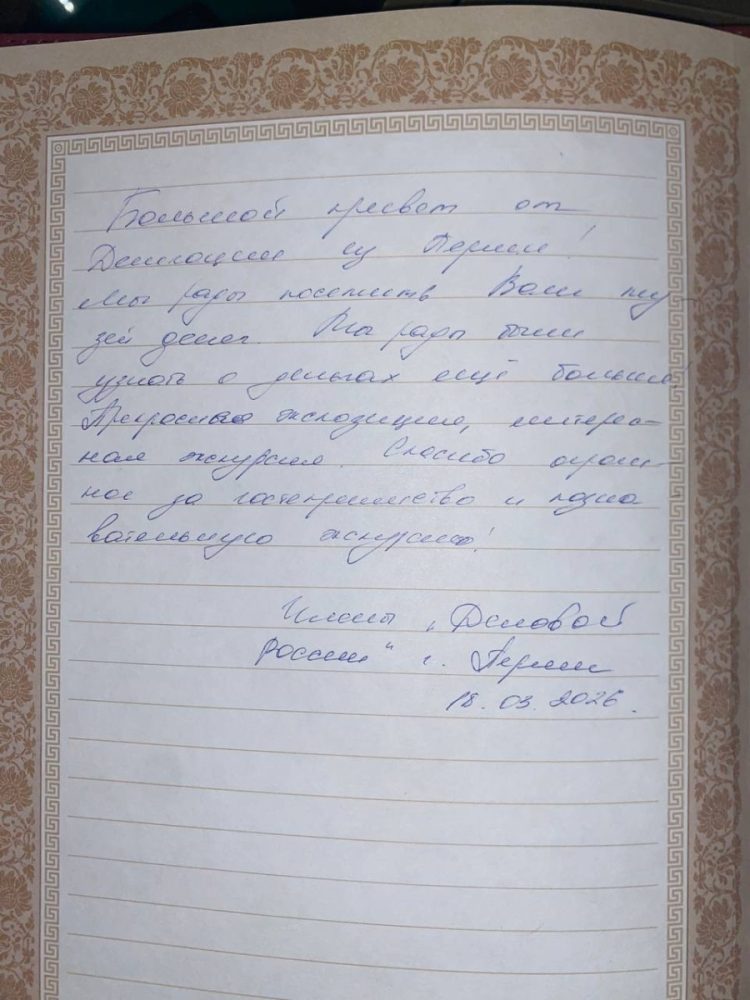 Большой привет от
Делегации из Перми!
Мы рады посетить Ваш му-
зей денег. Мы рады были
узнать о деньгах ещё больше!
Прекрасная экспозиция, интерес-
ная экскурсия. Спасибо огром-
ное за гостеприимство и позна
вательную экскурсию!
Члены „Деловой
России" г. Перми
18.03.2026.